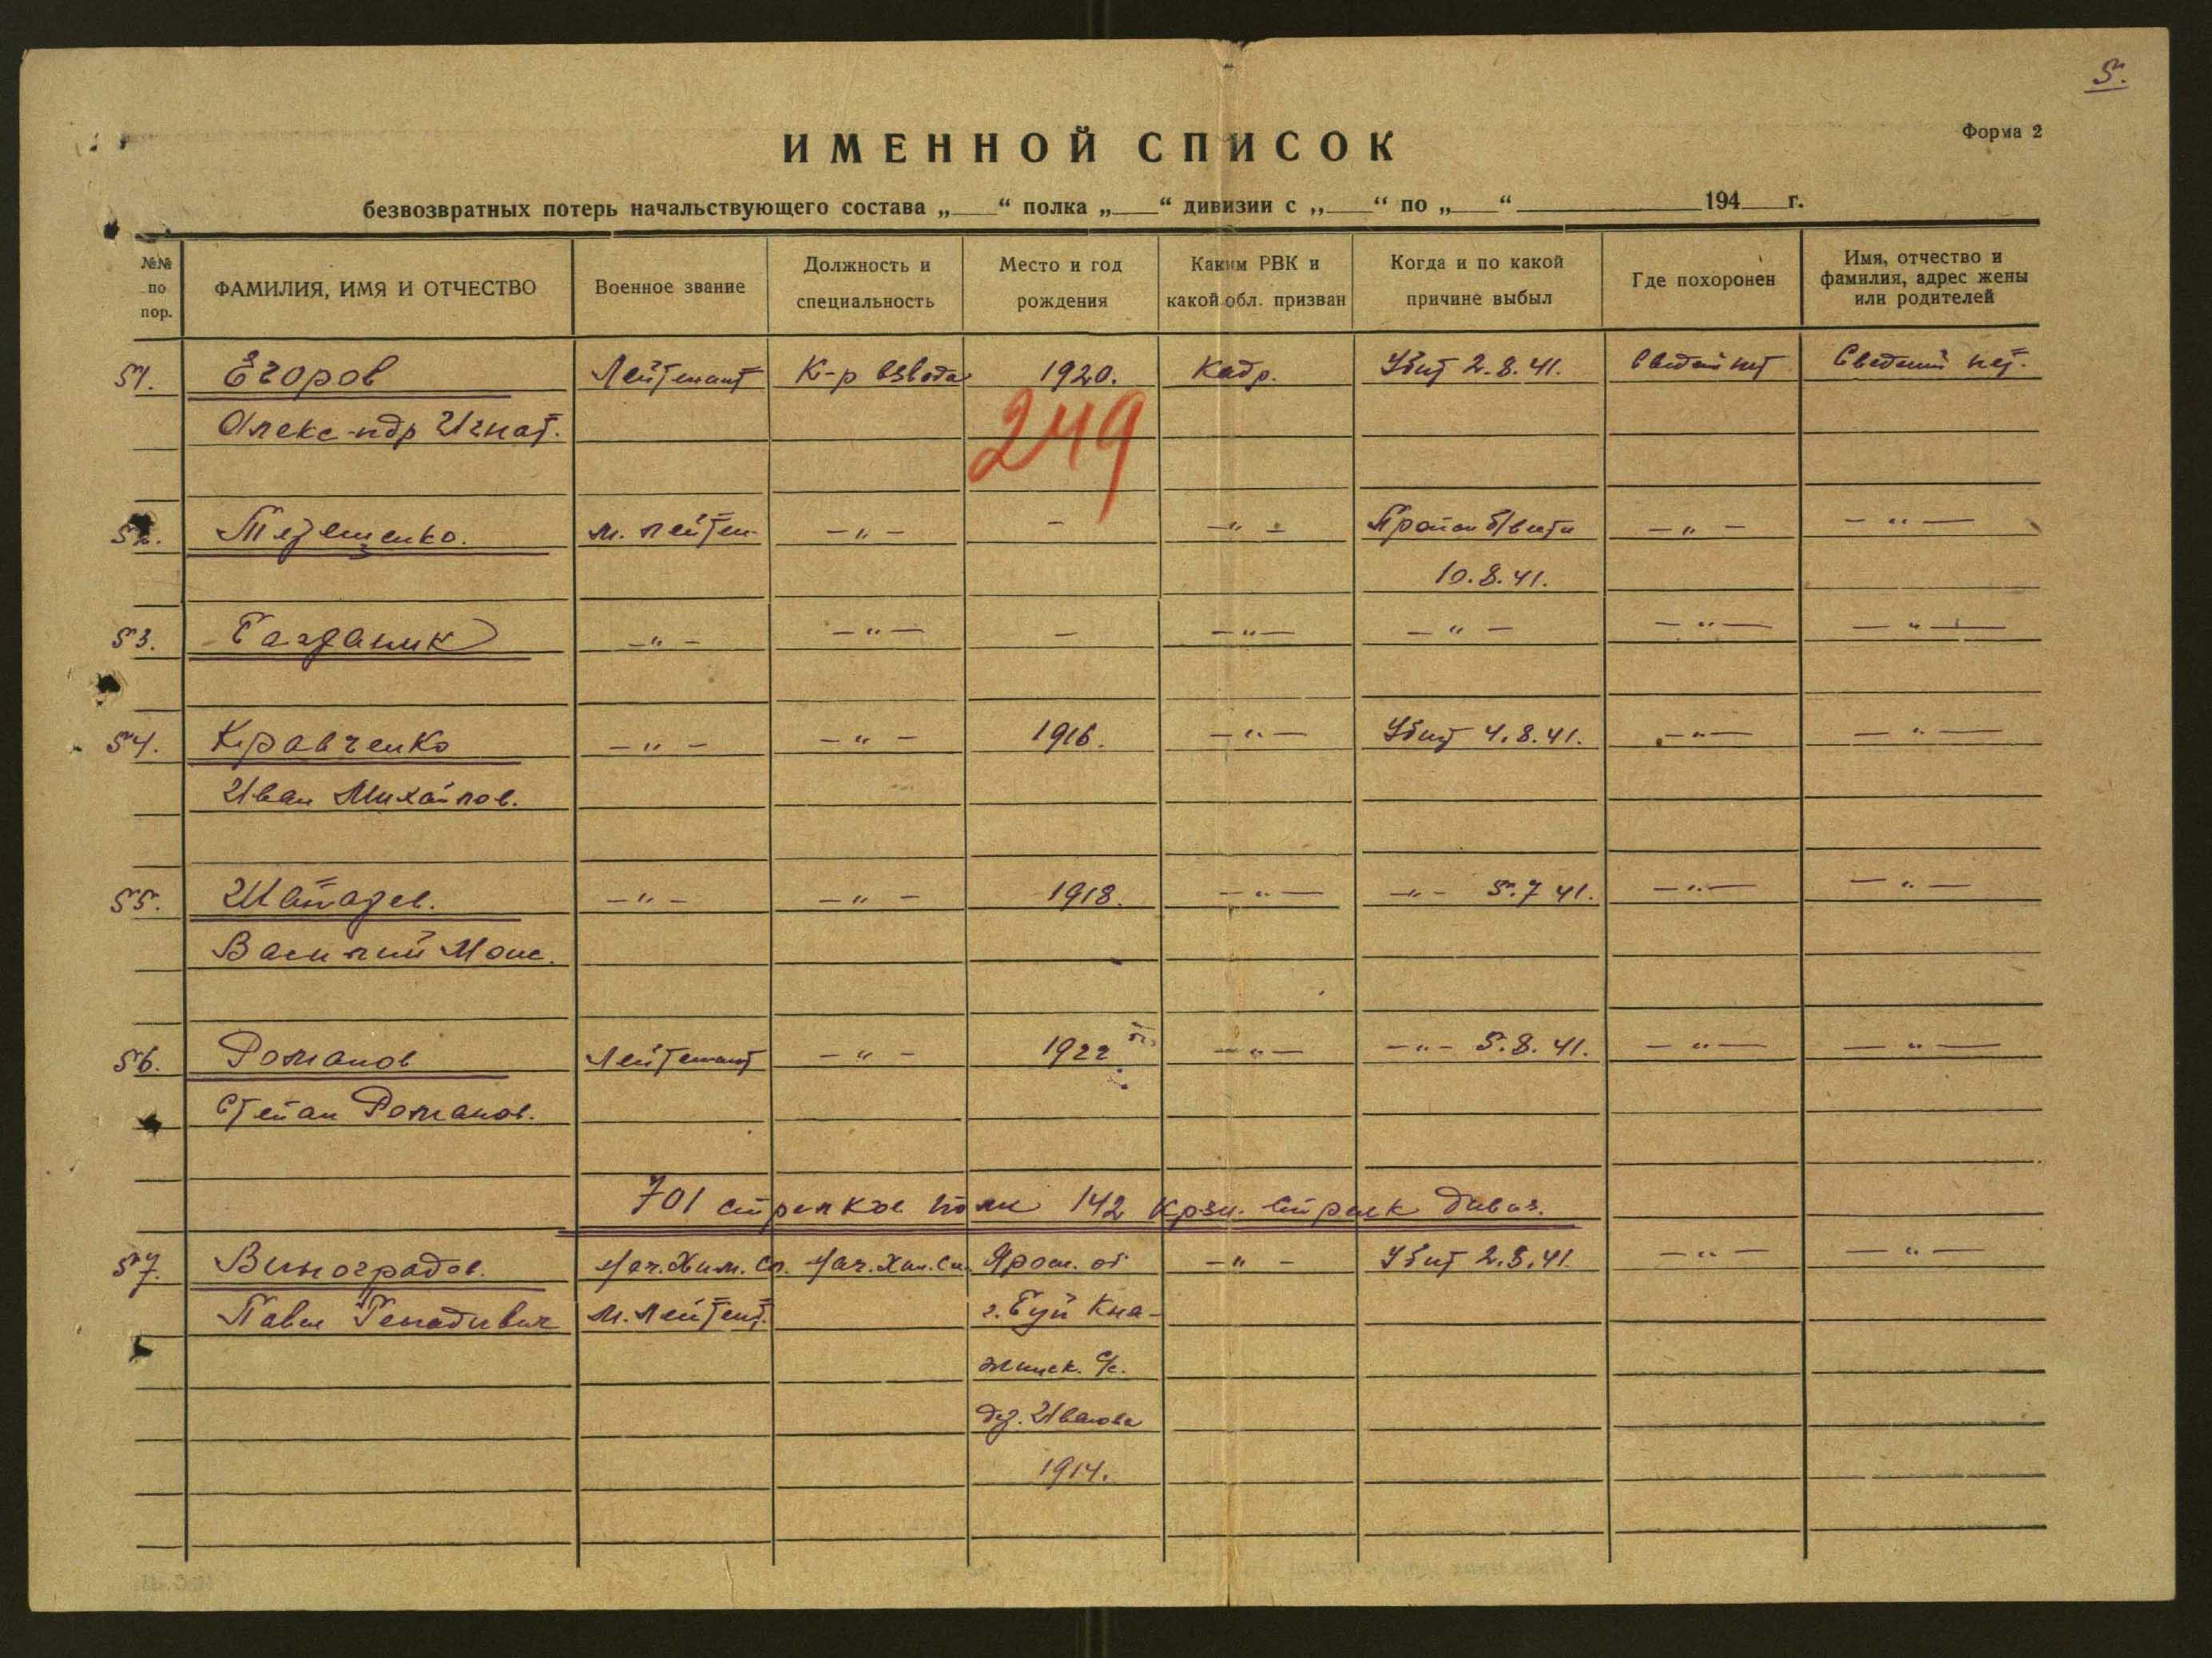 5.
Форма 2
ИМЕННОЙ СПИСОК
безвозвратных потерь начальствующего состава „___“ полка „___“ дивизии с „___“ по „___“ __________ 194___г.
№№ по пор.
ФАМИЛИЯ, ИМЯ И ОТЧЕСТВО
Военное звание
Должность и специальность
Место и год рождения
Каким РВК и какой обл. призван
Когда и по какой причине выбыл
Где похоронен
Имя, отчество и фамилия, адрес жены или родителей
51. Егоров Лейтенант К-р взвода 1920. Кадр. Убит 2.8.41. Сведен нет Сведений нет.
Алекс-ндр Игнат.
249
52. Терещенко. м. лейтен. -"- - -"- -"- -"-
10.8.41.
53. -"- -"- - -"- -"- -"- -"-
54. Кравченко -"- -"- 1916. -"- Убит 4.8.41. -"- -"-
Иван Михайлов.
55. -"- -"- 1918. -"- -"- 5.7 41. -"- -"-
Василий Моис.
56. Романов Лейтенант -"- 1922 -"- -"- 5.8.41. -"- -"-
Степан Романов.
701 стрелков полк 142 Крзн. стрелк дивиз.
57. Виноградов. Нач.Хим.Сл. Нач.Хим.Сл. Яросл. об -"- Убит 2.8.41. -"- -"-
Павел Генадиевич м. лейтент. г. Буй Кня-
жинск. с/с.
дер. Иваново
1914.